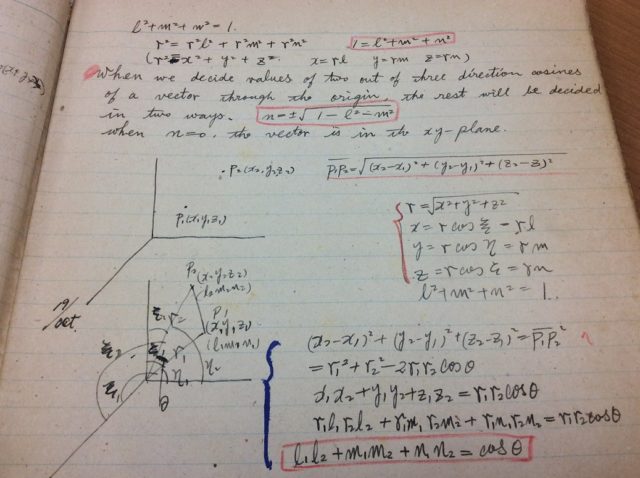 l²+m²+n²=1.
r²=r²l²+r²m²+r²n²   1=l²+m²+n²
(r²=x²+y²+z²   x=rl   y=rm   z=rn)
When we decide values of two out of three direction cosines
of a vector through the origin, the rest will be decided
in two ways.   n=±√1-l²-m²
when n=0, the vector is in the xy-plane.
P₂(x₂,y₂,z₂)   P₁P₂=√(x₂-x₁)²+(y₂-y₁)²+(z₂-z₁)²
P₁(x₁y₁z₁)
r=√x²+y²+z²
x=r cos ξ = rl
y=r cos η = rm
z=r cos ζ = rn
l²+m²+n²=1.
19/Oct.
P₂
(x₂y₂z₂)
(l₂m₂n₂)
P₁
(x₁y₁z₁)
(l₁m₁n₁)
r₂
r₁
η₁
η₂
θ
(x₂-x₁)²+(y₂-y₁)²+(z₂-z₁)²=P₁P₂²
=r₁²+r₂²-2r₁r₂cosθ
x₁x₂+y₁y₂+z₁z₂=r₁r₂cosθ
r₁l₁r₂l₂+r₁m₁r₂m₂+r₁n₁r₂n₂=r₁r₂cosθ
l₁l₂+m₁m₂+n₁n₂=cosθ